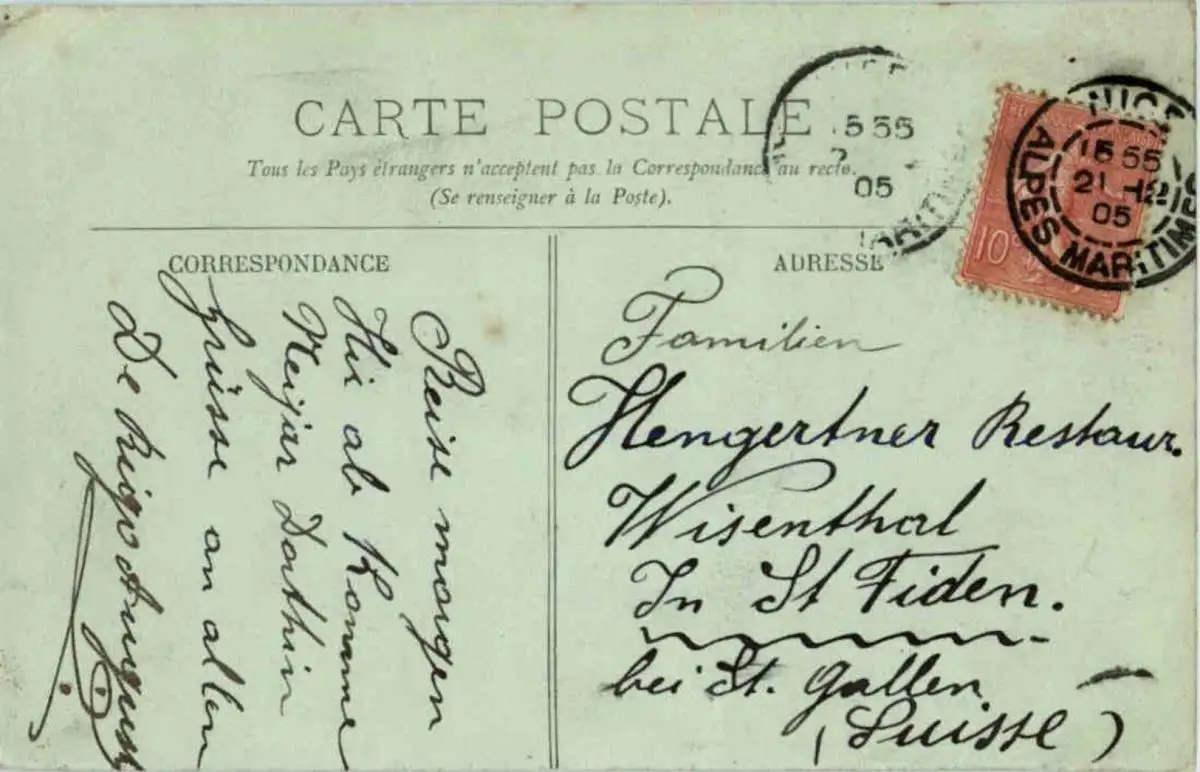 CARTE POSTALE
Tous les Pays étrangers n'acceptent pas la Correspondance au recto.
(Se renseigner à la Poste).
5 55
05
NICE
15 55
21 -12
05
ALPES MARITIMES
10
CORRESPONDANCE
Reise morgen
Hir ab Komme
Neijar Dorthin
Grüsse an allen
De Rigo August
ADRESSE
Familien
Hengertner Restaur.
Wisenthal
In St Fiden.
bei St. Gallen
(Suisse)